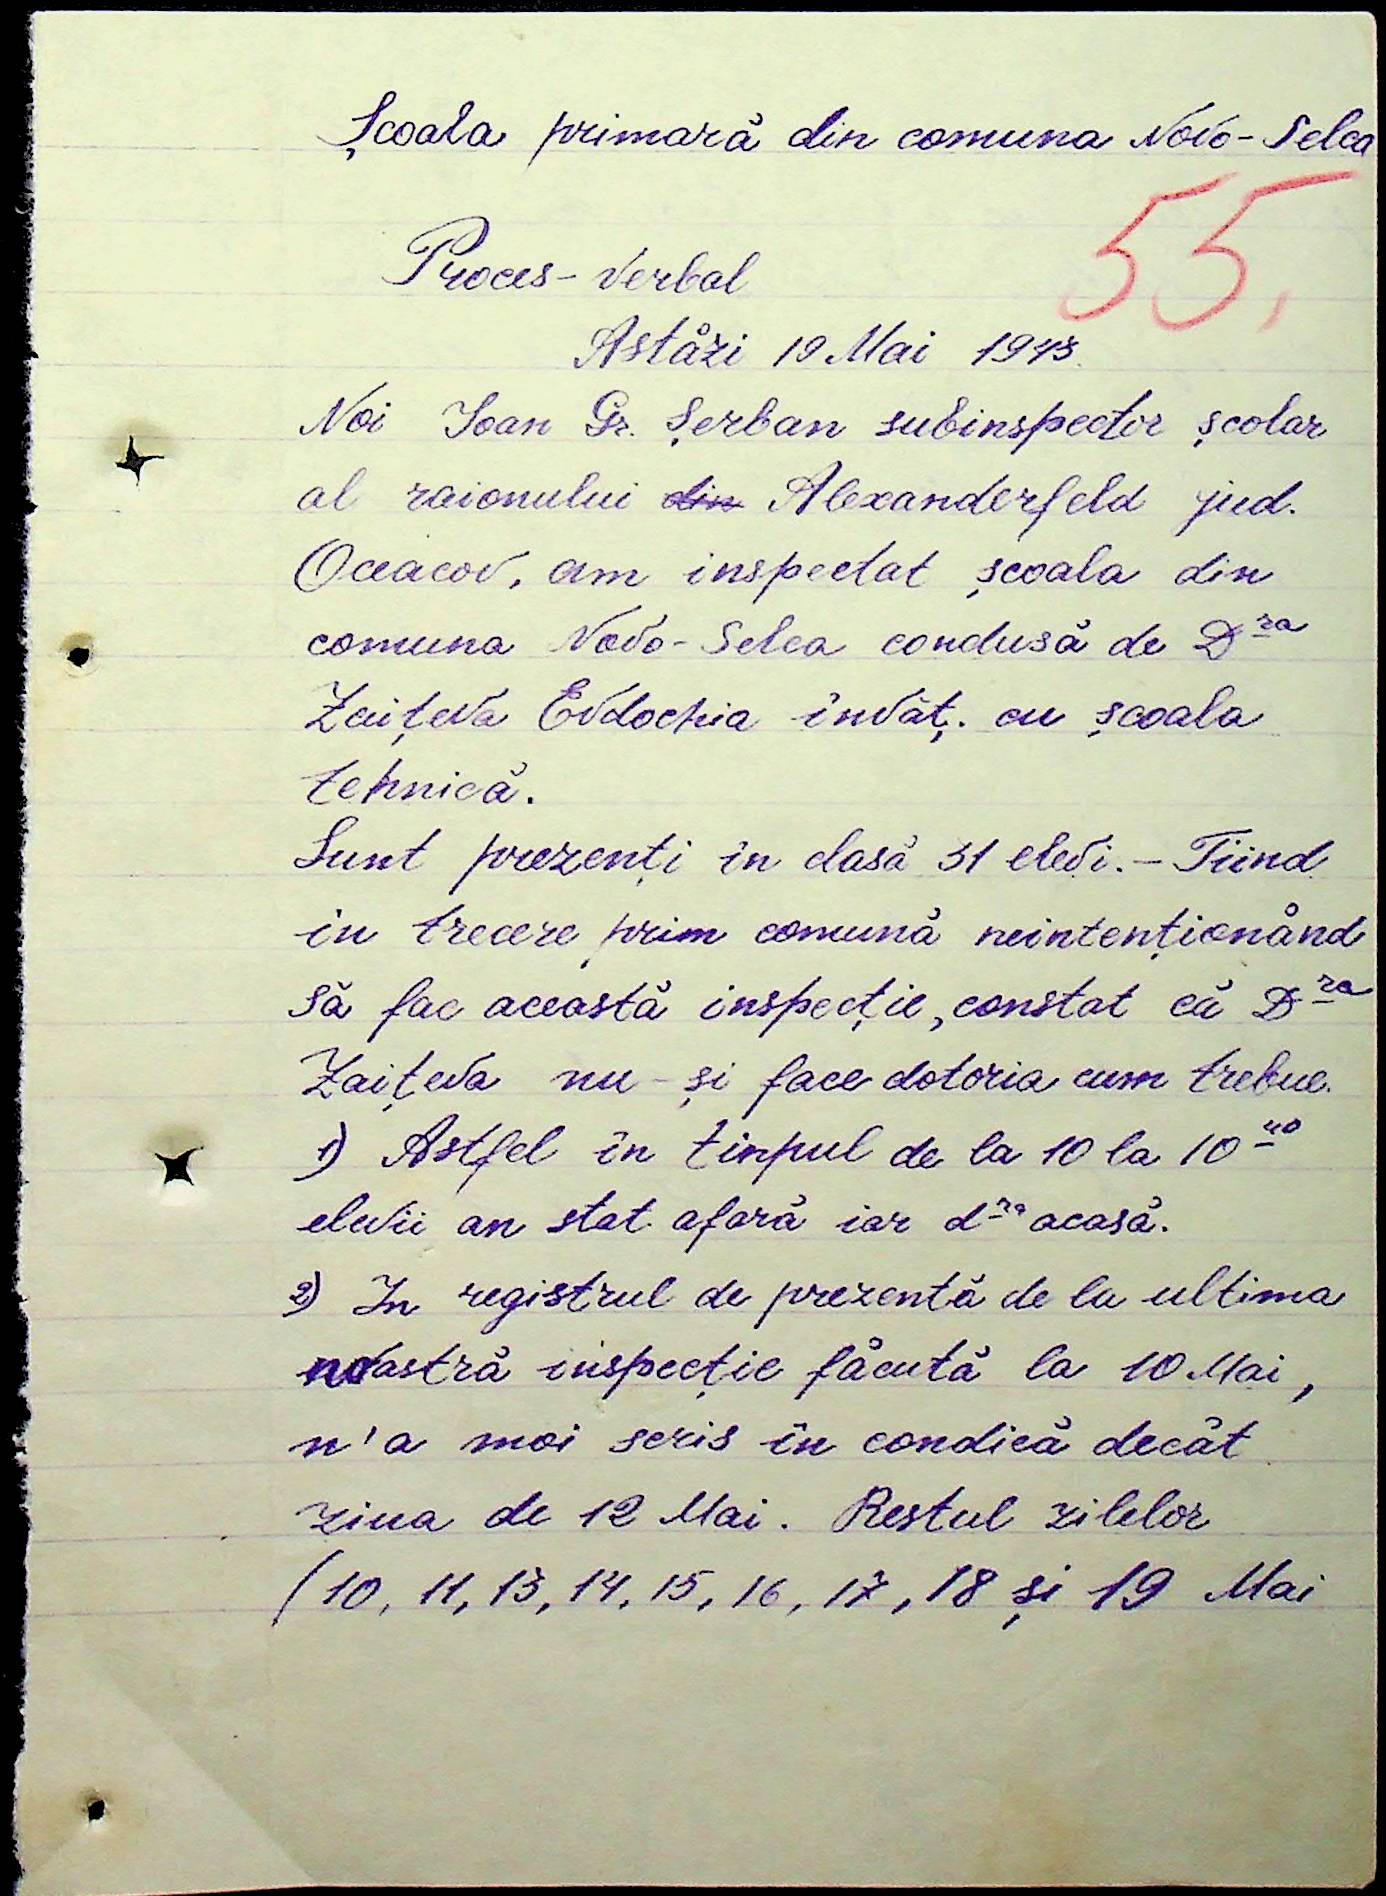 Școala primară din comuna Novo-Selca
55,
Proces-Verbal
Astăzi 19 Mai 1943.
Noi Ioan Gr. Șerban subinspector școlar
al raionului din Alexanderfeld jud.
Oceacov, am inspectat școala din
comuna Novo-Selca condusă de D ra
Zaițeva Evdochia învăț. cu școala
tehnică.
Sunt prezenți în clasă 31 elevi. – Fiind
in trecere prim comună neintenționând
să fac această inspecție, constat că D ra
Zaițeva nu-și face dotoria cum trebue.
1) Astfel în timpul de la 10 la 10 40
elevii an stat afară iar d ra acasă.
2) In registrul de prezentă de la ultima
noastră inspecție făcută la 10 Mai,
n'a moi scris în condică decât
ziua de 12 Mai. Restul zilelor
(10, 11, 13, 14, 15, 16, 17, 18 și 19 Mai